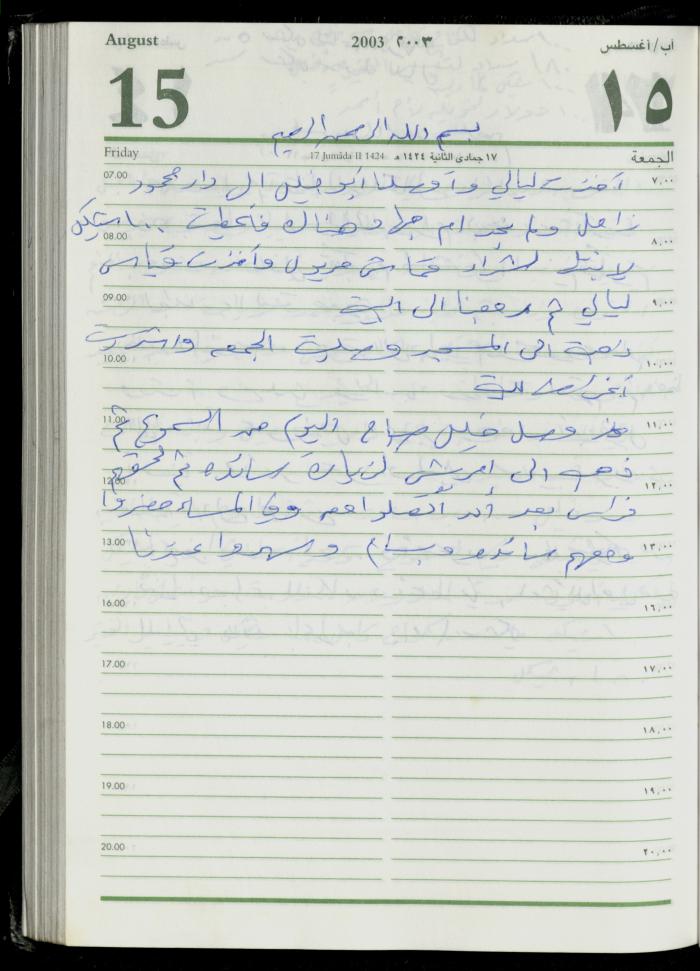 August 2003 ٢٠٠٣ آب/أغسطس
15 ١٥
بسم الله الرحمن الرحيم
Friday 17 Jumâda II 1424 ١٧ جمادى الثانية ١٤٢٤ هـ الجمعة
07.00 أخذت ليالي وأوصلنا أبو خليل الى دار محمود ٧,٠٠
زاهل ولم نجد ام جهاد هناك فأعطيت
08.00 ٨,٠٠
لابنتها لشراء قماش مريول وأخذت قياس
09.00 ليالي ثم رجعنا الى البيت ٩,٠٠
ذهبت الى المسجد وصليت الجمعه واشتريت
10.00 ١٠,٠٠
أغراض للبيت
11.00 وصل خليل صباح اليوم من السموع ثم ١١,٠٠
ذهب الى لزيارة سائده ثم لحقهم
12.00 ١٢,٠٠
فراس بعد أن اتصلوا معه وفي المساء حضروا
13.00 ومعهم سائده وبسام وسهروا عندنا ١٣,٠٠
16.00 ١٦,٠٠
17.00 ١٧,٠٠
18.00 ١٨,٠٠
19.00 ١٩,٠٠
20.00 ٢٠,٠٠